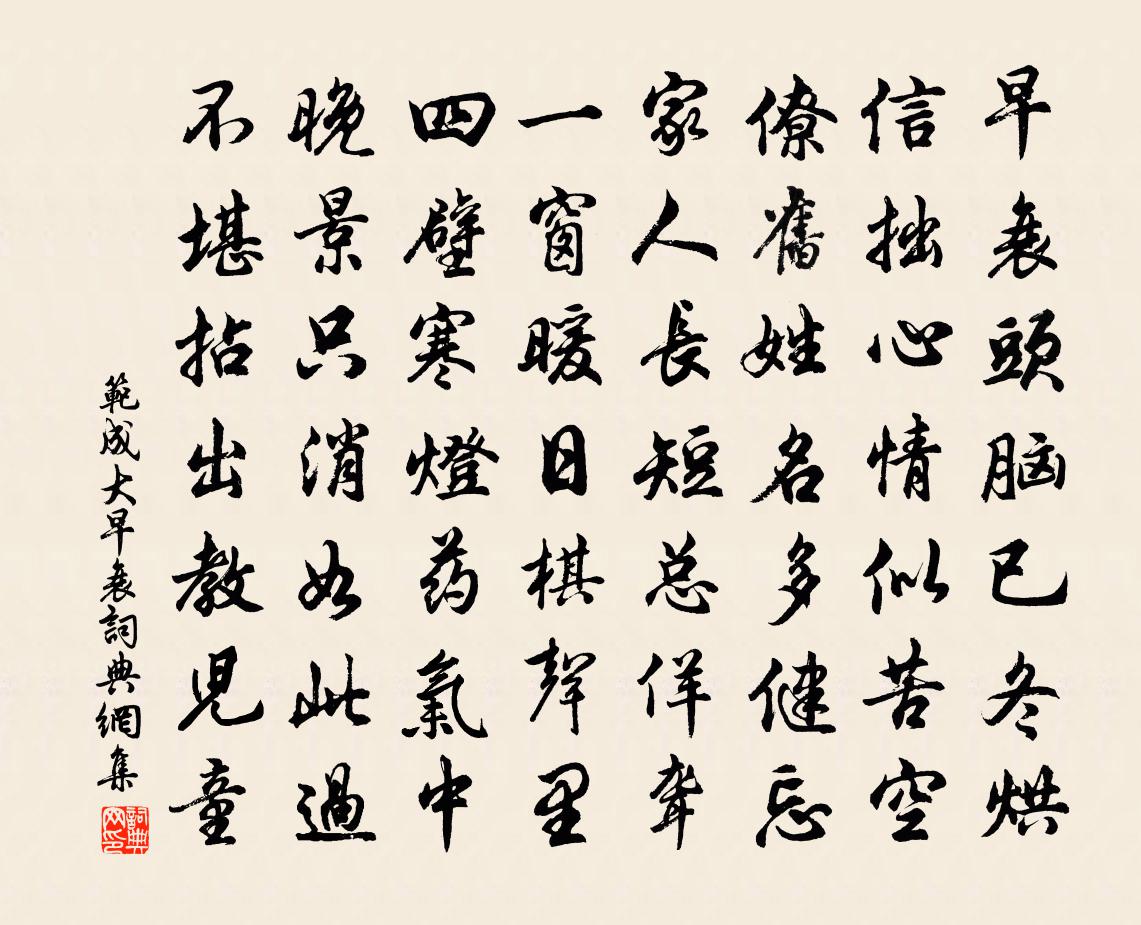 早衰頭脑已冬烘
信拙心情似苦空
僚舊姓名多健忘
家人長短总佯聾
一窗暖日棋聲里
四壁寒燈药氣中
晚景只消如此過
不堪拈出教兒童
範成大早衰詞典網集
詞典網印